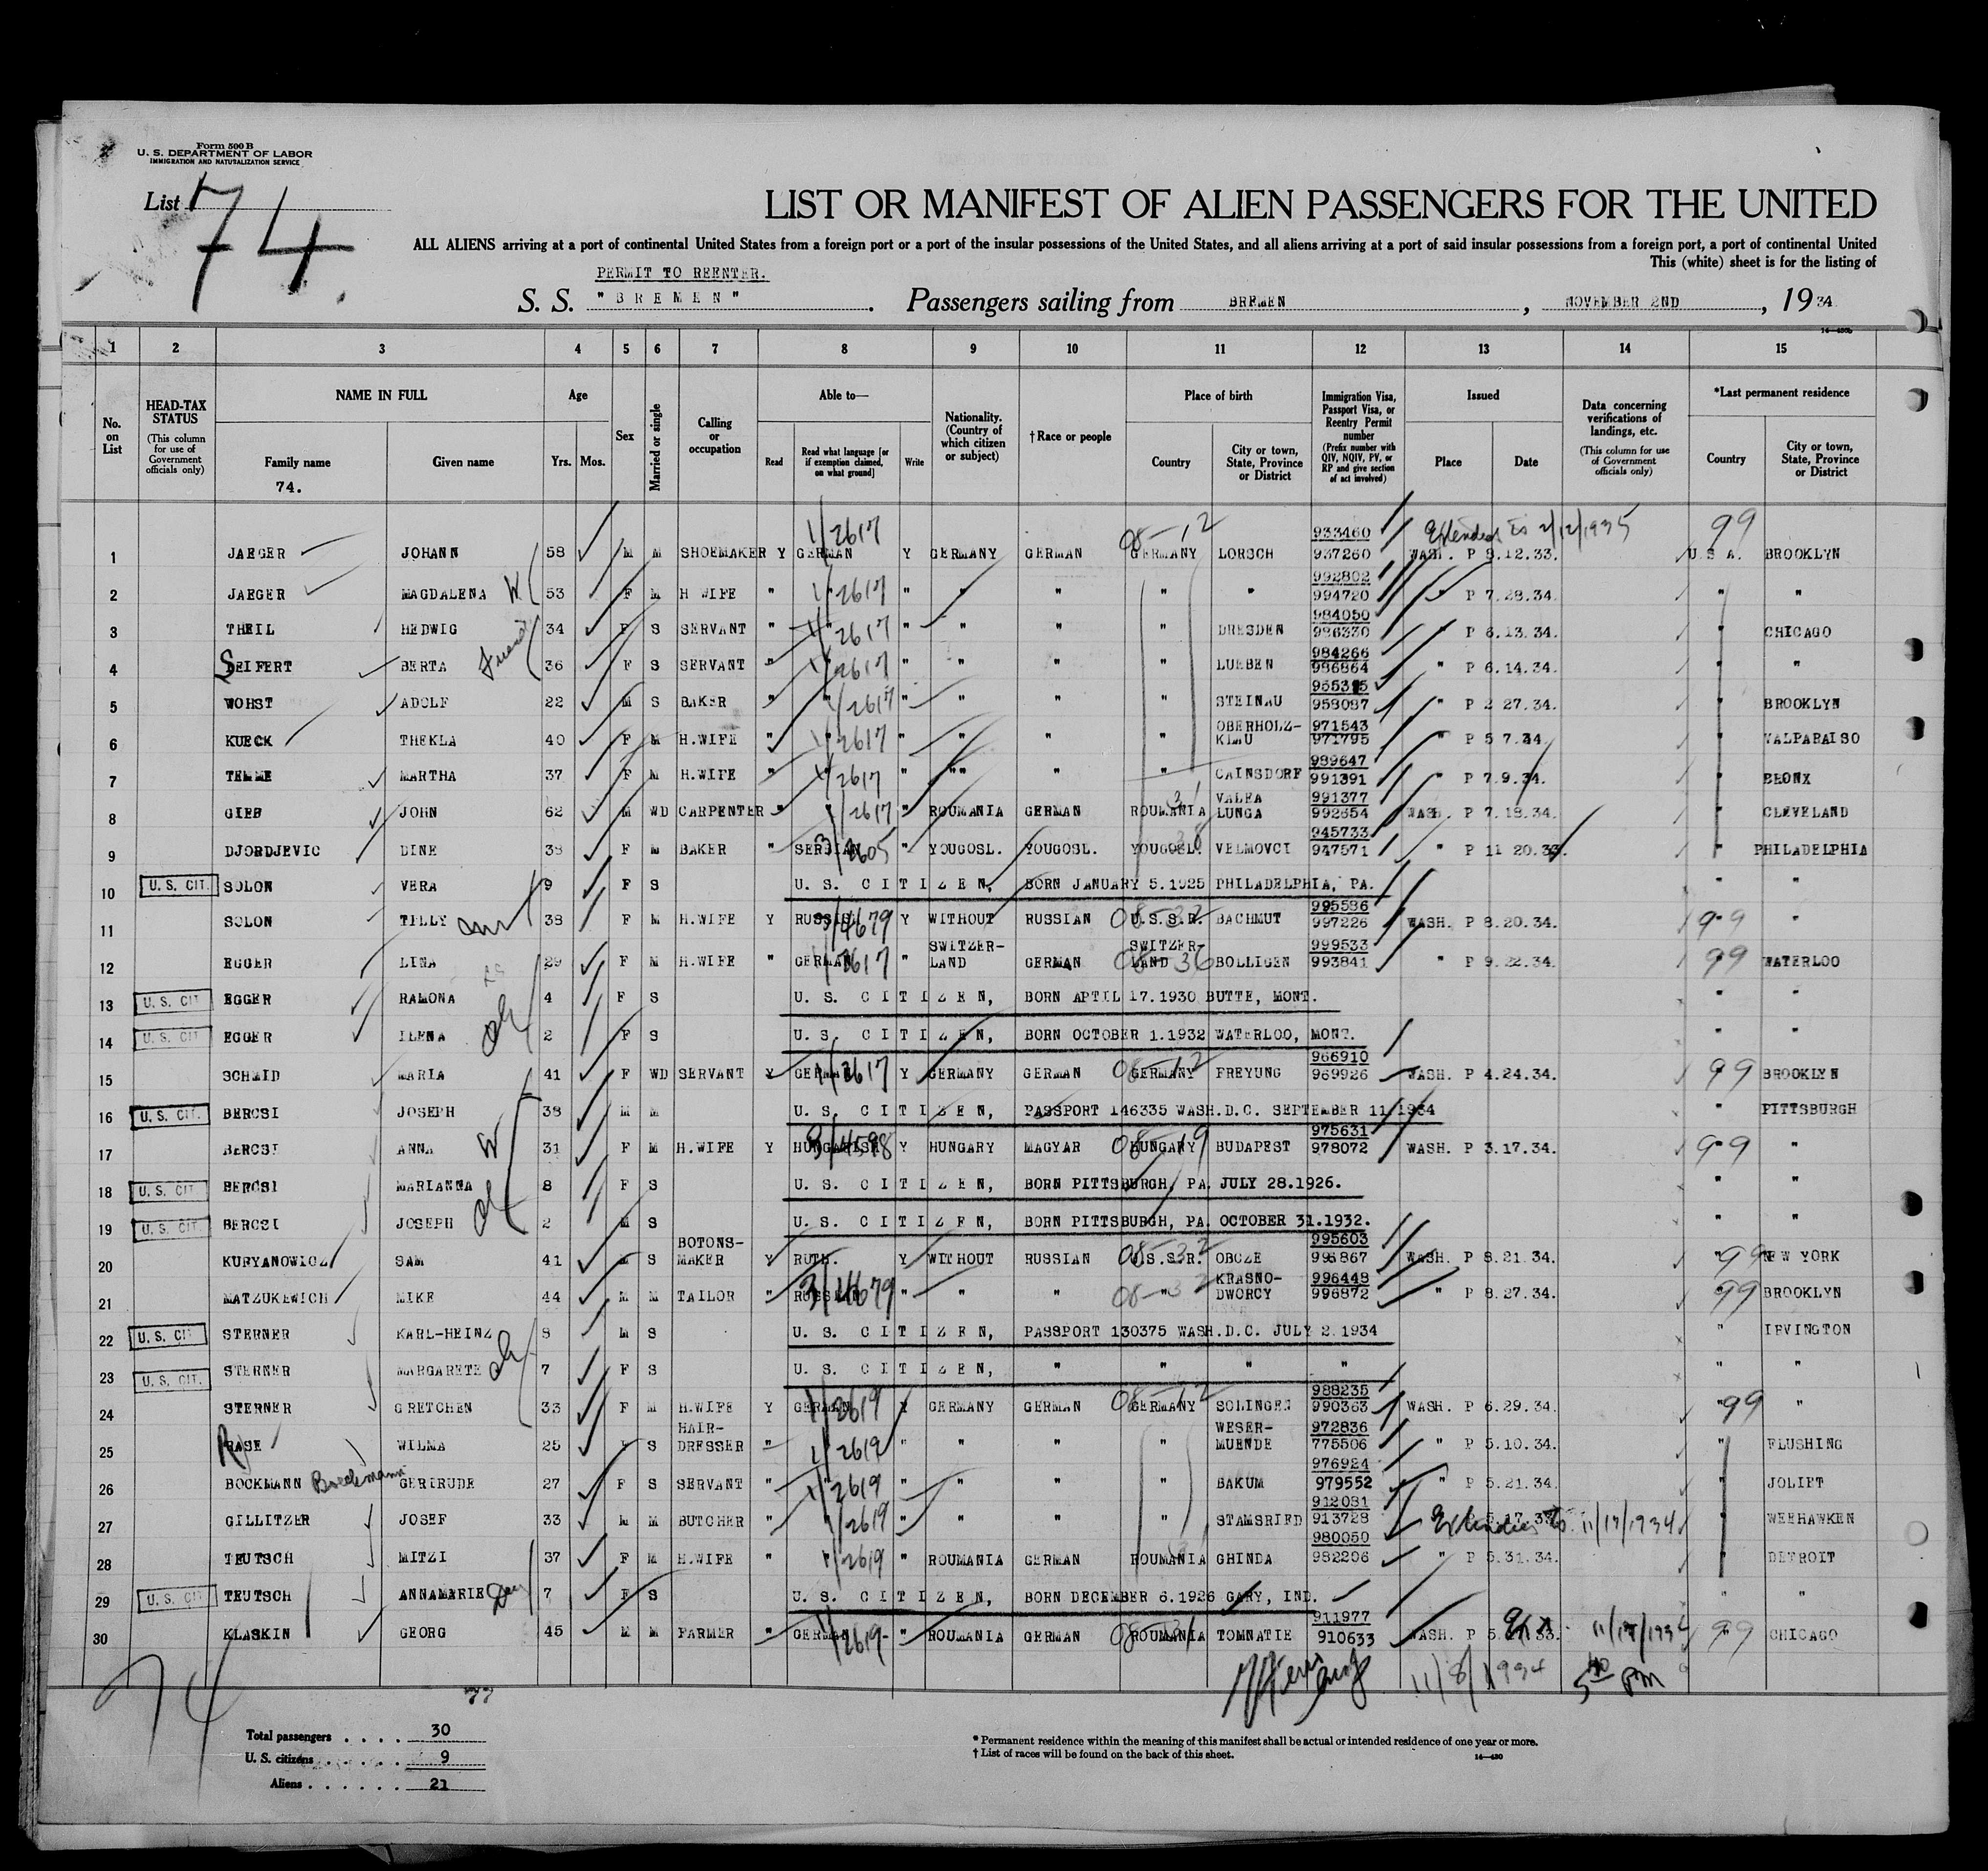 Form 500 B
U. S. DEPARTMENT OF LABOR
IMMIGRATION AND NATURALIZATION SERVICE
List 74
LIST OR MANIFEST OF ALIEN PASSENGERS FOR THE UNITED
ALL ALIENS arriving at a port of continental United States from a foreign port or a port of the insular possessions of the United States, and all aliens arriving at a port of said insular possessions from a foreign port, a port of continental United
This (white) sheet is for the listing of
PERMIT TO REENTER.
S. S. "BREMEN". Passengers sailing from BREMEN, NOVEMBER 2ND, 1934
1 2 3 4 5 6 7 8 9 10 11 12 13 14 15
No. on List
HEAD-TAX STATUS (This column for use of Government officials only)
NAME IN FULL Family name Given name
74.
Age Yrs. Mos.
Sex
Married or single
Calling or occupation
Able to— Read Read what language [or if exemption claimed, on what ground] Write
Nationality. (Country of which citizen or subject)
†Race or people
Place of birth Country City or town, State, Province or District
Immigration Visa, Passport Visa, or Reentry Permit number (Prefix number with QIV, NQIV, PV, or RP and give section of act involved)
Issued Place Date
Data concerning verifications of landings, etc. (This column for use of Government officials only)
*Last permanent residence Country City or town, State, Province or District
1/2617 08-12 933460 Extended to 2/12/1935 99
1 JAEGER JOHANN 58 M M SHOEMAKER Y GERMAN Y GERMANY GERMAN GERMANY LORSCH 937260 WASH. P 8.12.33. U.S A. BROOKLYN
992802
2 JAEGER MAGDALENA W 53 F M H WIFE " 1/2617 " " " " " 994720 " P 7.28.34. " "
984050
3 THEIL HEDWIG 34 F S SERVANT " 1/2617 " " " " DRESDEN 986330 " P 6.13.34. " CHICAGO
984266
4 SEIFERT BERTA 36 F S SERVANT " 1/2617 " " " " LUEBEN 986864 " P 6.14.34. " "
5 WOHST ADOLF 22 M S BAKER " 1/2617 " " " " STEINAU 958087 " P 2 27.34. " BROOKLYN
OBERHOLZ- 971543
6 KUECK THEKLA 40 F M H.WIFE " 1/2617 " " " " KLAU 971795 " P 5 7.34. " VALPARAISO
989647
7 TEMME MARTHA 37 F M H.WIFE " 1/2617 " "" " " CAINSDORF 991391 " P 7.9.34. " BRONX
VALEA 991377
8 GIEB JOHN 62 M WD CARPENTER " 1/2617 " ROUMANIA GERMAN ROUMANIA LUNGA 992654 WASH. P 7.18.34. " CLEVELAND
945733
9 DJORDJEVIC DINE 38 F M BAKER " SERBIAN 3/2605 " YOUGOSL. YOUGOSL. YOUGOSL. VELMOVCI 947571 " P 11 20.33. " PHILADELPHIA
10 U.S. CIT. SOLON VERA 9 F S U. S. CITIZEN, BORN JANUARY 5.1925 PHILADELPHIA, PA. " "
995586
11 SOLON TILLY 38 F M H.WIFE Y RUSSIAN 3/4679 Y WITHOUT RUSSIAN 08-32 U.S.S.R. BACHMUT 997226 WASH. P 8.20.34. 99 "
SWITZER- SWITZER- 999533
12 EGGER LINA 29 F M H.WIFE " GERMAN 1/2617 " LAND GERMAN LAND 08-36 BOLLIGEN 993841 " P 9.22.34. 99 WATERLOO
13 U. S. CIT EGGER RAMONA 4 F S U. S. CITIZEN, BORN APTIL 17.1930 BUTTE, MONT. " "
14 U. S. CIT EGGER ILENA 2 F S U. S. CITIZEN, BORN OCTOBER 1.1932 WATERLOO, MONT. " "
966910
15 SCHMID MARIA 41 F WD SERVANT Y GERMAN 1/2617 Y GERMANY GERMAN 08-12 GERMANY FREYUNG 969926 WASH. P 4.24.34. 99 BROOKLYN
16 U. S. CIT BERCSI JOSEPH 38 M M U. S. CITIZEN, PASSPORT 146335 WASH.D.C. SEPTEMBER 11/1934 " PITTSBURGH
975631
17 BERCSI ANNA W 31 F M H.WIFE Y HUNGARISH 3/4598 Y HUNGARY MAGYAR 08-19 HUNGARY BUDAPEST 978072 WASH. P 3.17.34. 99 "
18 U. S. CIT. BERCSI MARIANNA 8 F S U. S. CITIZEN, BORN PITTSBURGH, PA. JULY 28.1926. " "
19 U. S. CIT. BERCSI JOSEPH 2 M S U. S. CITIZEN, BORN PITTSBURGH, PA. OCTOBER 31.1932. " "
BOTONS- 995603
20 KURYANOWICZ SAM 41 M S MAKER Y RUTH. Y WITHOUT RUSSIAN 08-32 U.S.S.R. OBOZE 995867 WASH. P 8.21.34. 99 NEW YORK
KRASNO- 996448
21 MATZUKEWICH MIKE 44 M M TAILOR " RUSSIAN 3/4679 " " " 08-32 " DWORCY 996872 " P 8.27.34. 99 BROOKLYN
22 U. S. CIT STERNER KARL-HEINZ 8 M S U. S. CITIZEN, PASSPORT 130375 WASH.D.C. JULY 2.1934 " IRVINGTON
23 U. S. CIT. STERNER MARGARETE 7 F S U. S. CITIZEN, " " " " " "
988235
24 STERNER GRETCHEN 33 F M H.WIFE Y GERMAN 1/2619 Y GERMANY GERMAN 08-12 GERMANY SOLINGEN 990363 WASH. P 6.29.34. 99 "
HAIR- WESER- 972836
25 RASE WILMA 25 F S DRESSER " 1/2619 " " " " MUENDE 775506 " P 5.10.34. " FLUSHING
976924
26 BOCKMANN Boeckmann GERTRUDE 27 F S SERVANT " 1/2619 " " " " BAKUM 979552 " P 5.21.34. " JOLIET
912081
27 GILLITZER JOSEF 33 M M BUTCHER " 1/2619 " " " " STAMSRIED 913728 Extended to 11/17/1934 " WEEHAWKEN
980050
28 TEUTSCH MITZI 37 F M H.WIFE " 1/2619 " ROUMANIA GERMAN ROUMANIA GHINDA 982206 " P 5.31.34. " DETROIT
29 U. S. CIT TEUTSCH ANNAMARIE 7 F S U. S. CITIZEN, BORN DECEMBER 6.1926 GARY, IND. " "
911977
30 KLASKIN GEORG 45 M M FARMER " GERMAN 1/2619 " ROUMANIA GERMAN ROUMANIA TOMNATIE 910633 WASH. P Ext 11/17/1934 99 CHICAGO
11/8/1934 5 40 PM
74
Total passengers . . . . 30
U. S. citizens . . . . . 9
Aliens . . . . . . 21
* Permanent residence within the meaning of this manifest shall be actual or intended residence of one year or more.
† List of races will be found on the back of this sheet.
14—430